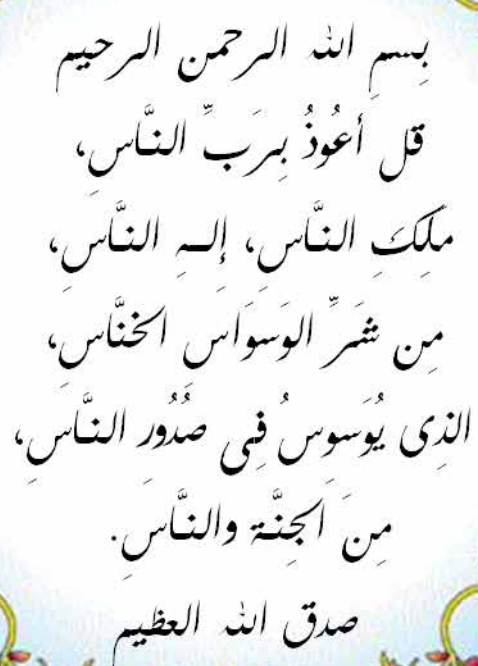 بِسمِ الله الرحمن الرحيم
قل أعُوذُ بِرَبِّ النَّاسِ،
ملِكِ النَّاسِ، إِلـهِ النَّاسِ،
مِن شَرِّ الوَسوَاسِ الخنَّاسِ،
الذِى يُوَسوِسُ فِى صُدُورِ النَّاسِ،
مِنَ الجِنَّة والنَّاسِ.
صدق الله العظيم